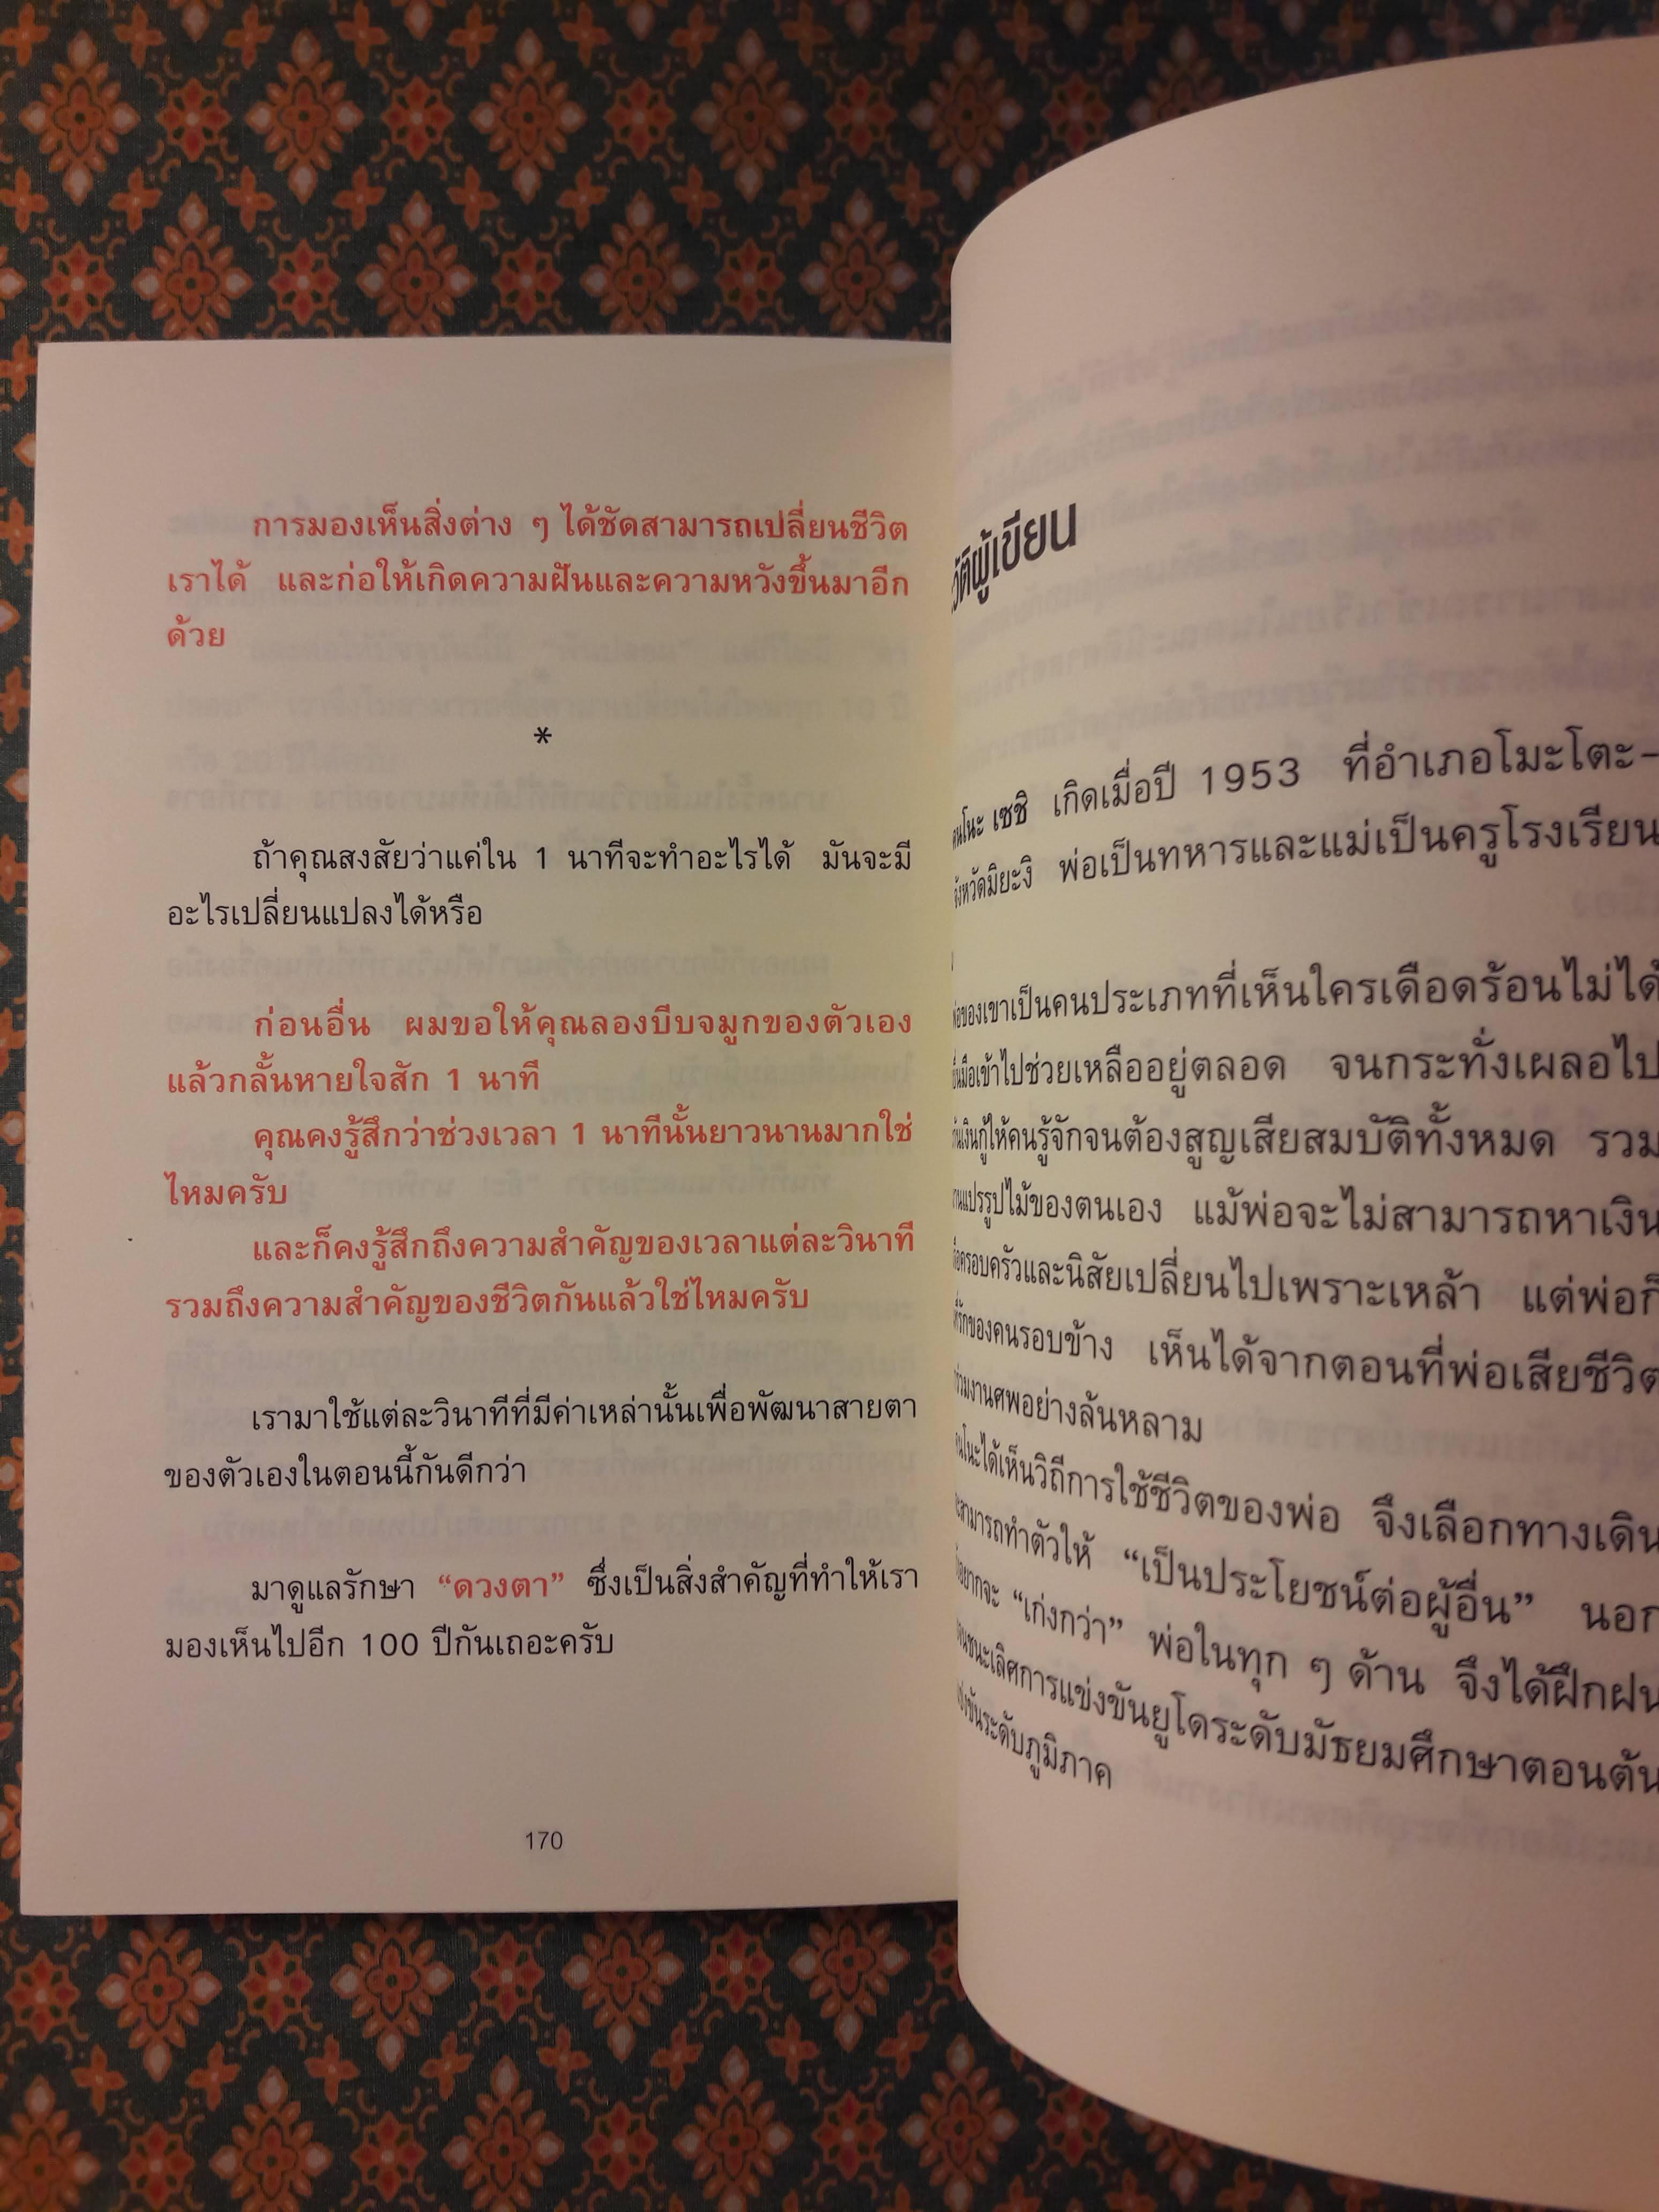 การมองเห็นสิ่งต่าง ๆ ได้ชัดสามารถเปลี่ยนชีวิต
เราได้ และก่อให้เกิดความฝันและความหวังขึ้นมาอีก
ด้วย
*
ถ้าคุณสงสัยว่าแค่ใน 1 นาทีจะทำอะไรได้ มันจะมี
อะไรเปลี่ยนแปลงได้หรือ
ก่อนอื่น ผมขอให้คุณลองบีบจมูกของตัวเอง
แล้วกลั้นหายใจสัก 1 นาที
คุณคงรู้สึกว่าช่วงเวลา 1 นาทีนั้นยาวนานมากใช่
ไหมครับ
และก็คงรู้สึกถึงความสำคัญของเวลาแต่ละวินาที
รวมถึงความสำคัญของชีวิตกันแล้วใช่ไหมครับ
เรามาใช้แต่ละวินาทีที่มีค่าเหล่านั้นเพื่อพัฒนาสายตา
ของตัวเองในตอนนี้กันดีกว่า
มาดูแลรักษา “ดวงตา” ซึ่งเป็นสิ่งสำคัญที่ทำให้เรา
มองเห็นไปอีก 100 ปีกันเถอะครับ
170
ผู้เขียน
เซชิ เกิดเมื่อปี 1953 ที่อำเภอโมะโตะ-
จังหวัดมิยะงิ พ่อเป็นทหารและแม่เป็นครูโรงเรียน
ของเขาเป็นคนประเภทที่เห็นใครเดือดร้อนไม่ได้
มือเข้าไปช่วยเหลืออยู่ตลอด จนกระทั่งเผลอไป
เงินกู้ให้คนรู้จักจนต้องสูญเสียสมบัติทั้งหมด รวม
แปรรูปไม้ของตนเอง แม้พ่อจะไม่สามารถหาเงิน
ครอบครัวและนิสัยเปลี่ยนไปเพราะเหล้า แต่พ่อก็
รักของคนรอบข้าง เห็นได้จากตอนที่พ่อเสียชีวิต
ร่วมงานศพอย่างล้นหลาม
ได้เห็นวิถีการใช้ชีวิตของพ่อ จึงเลือกทางเดิน
สามารถทำตัวให้ “เป็นประโยชน์ต่อผู้อื่น” นอก
อยากจะ “เก่งกว่า” พ่อในทุก ๆ ด้าน จึงได้ฝึกฝน
ชนะเลิศการแข่งขันยูโดระดับมัธยมศึกษาตอนต้น
ระดับภูมิภาค